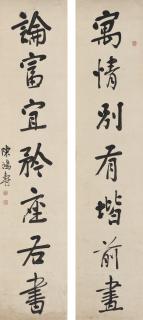 寓情別有堦前畫
論富宜矜座右書
陳鴻壽